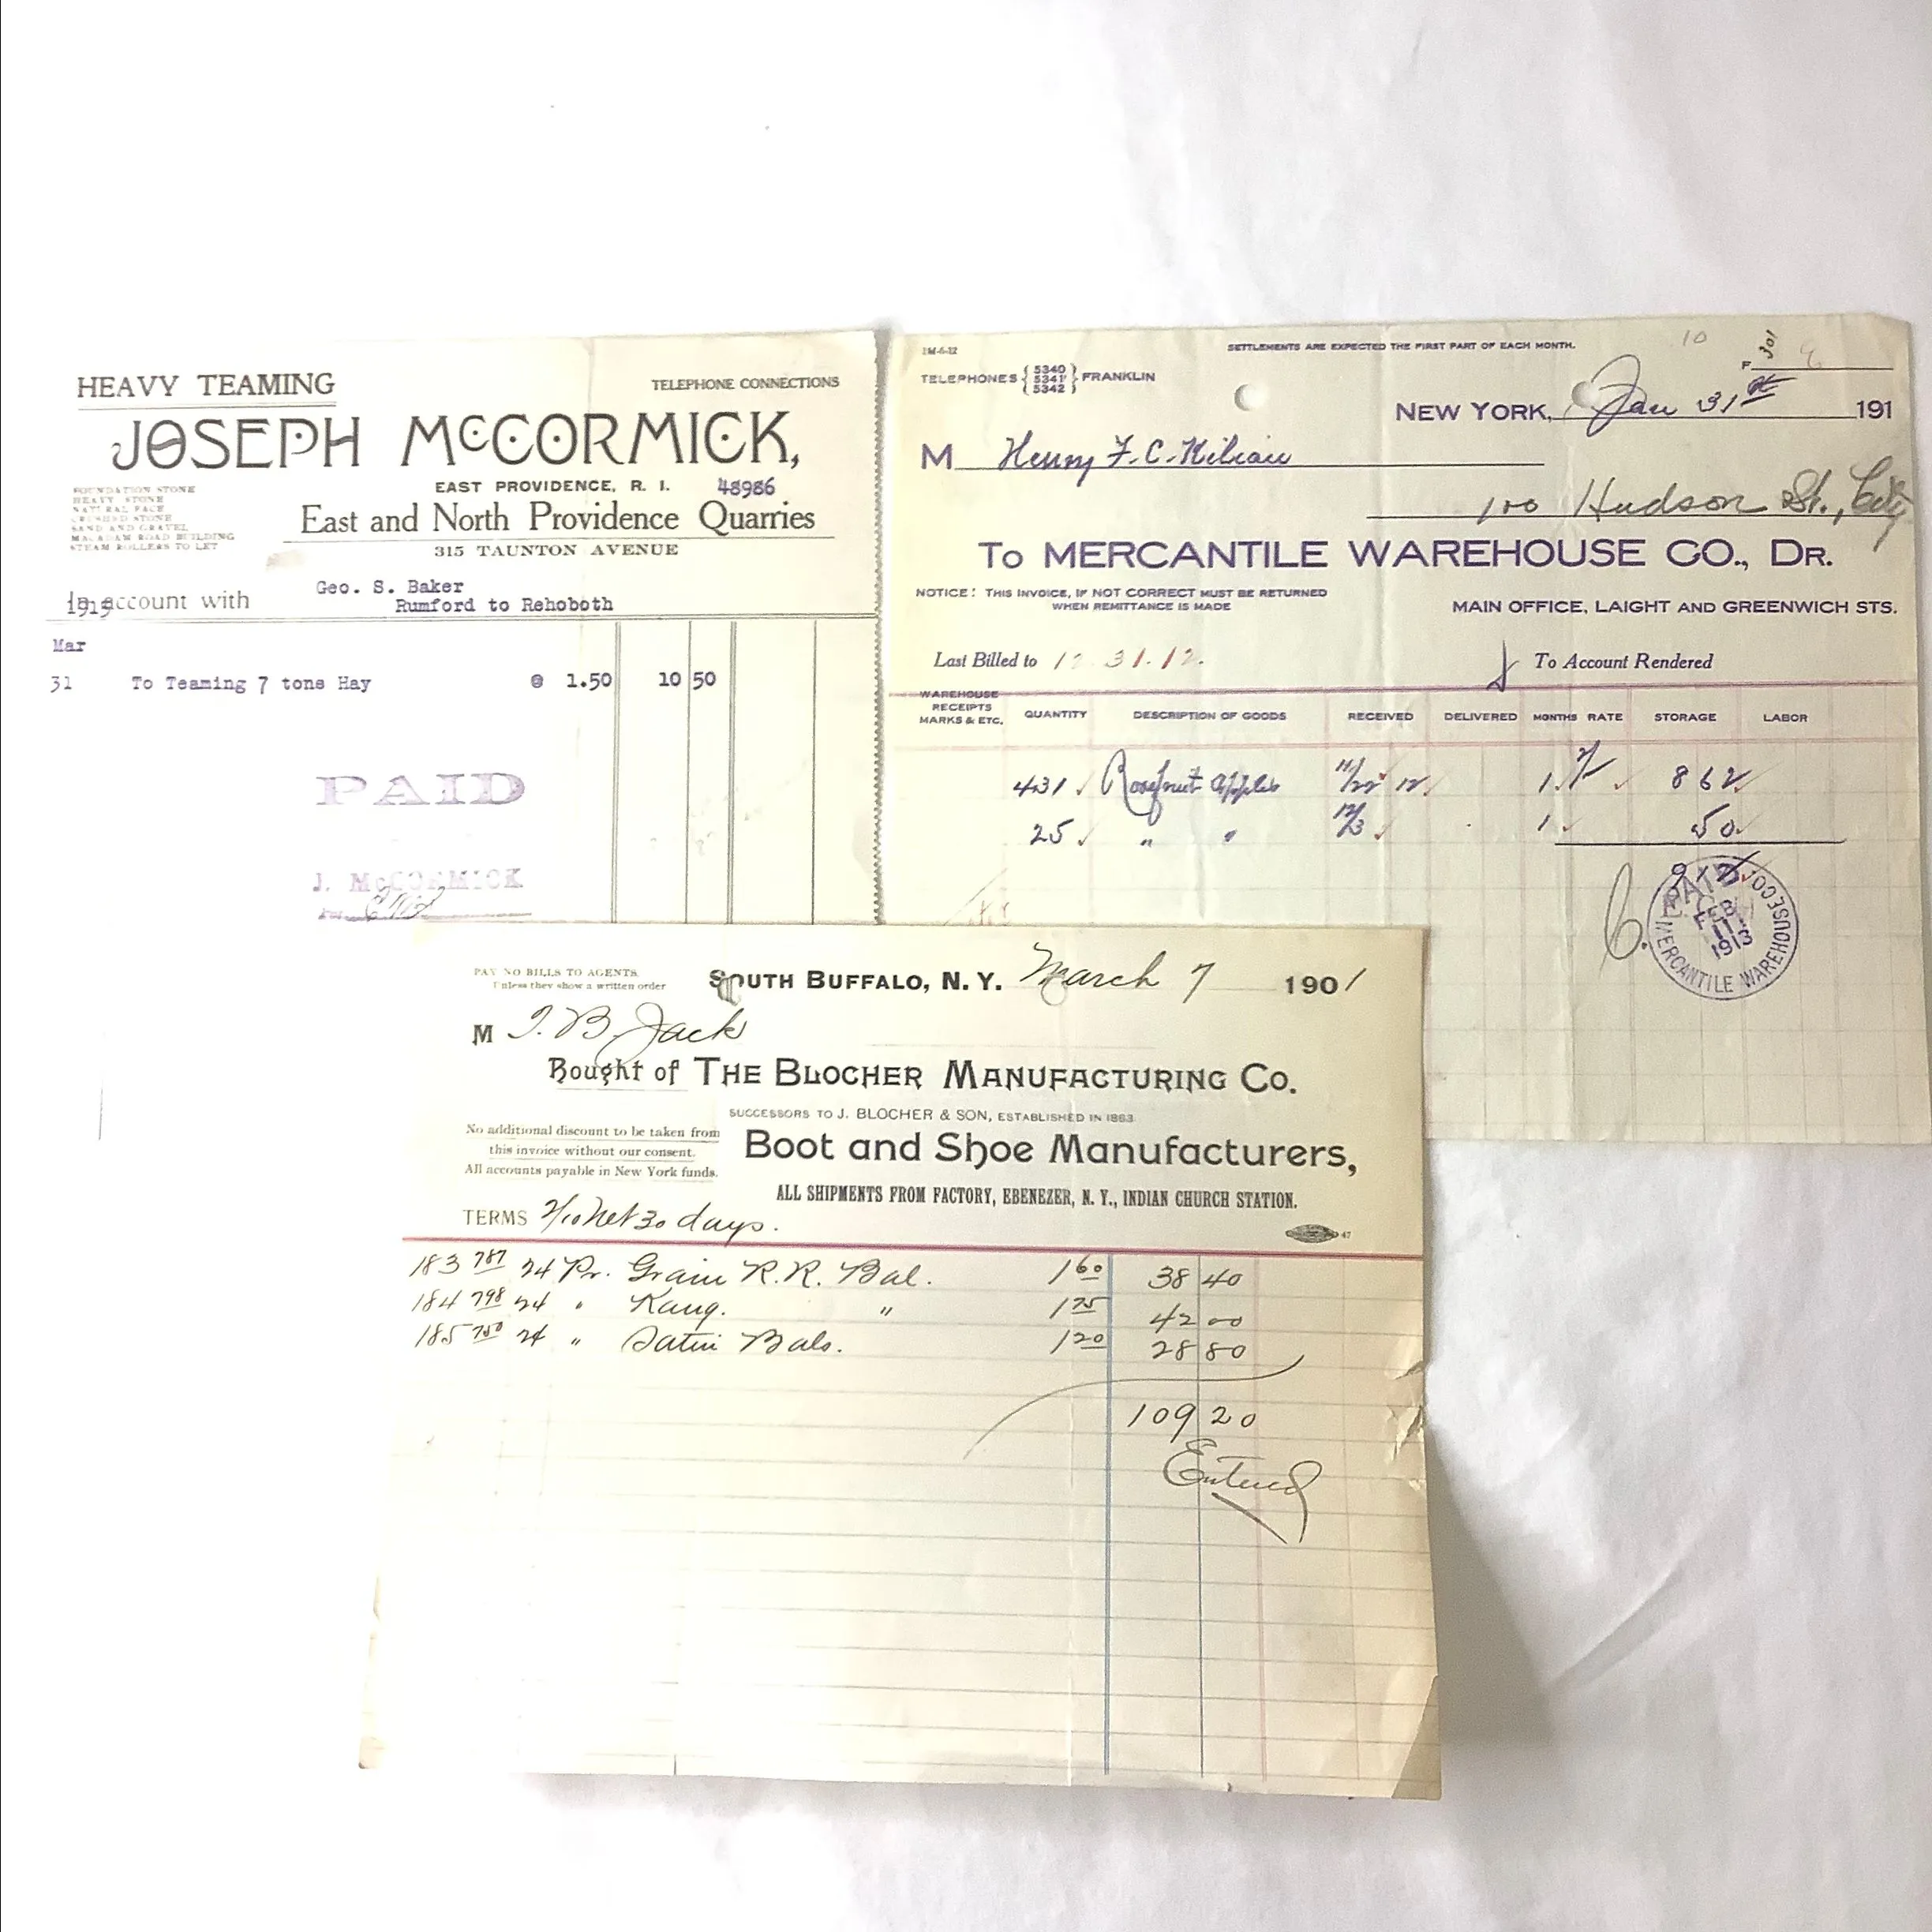 HEAVY TEAMING
TELEPHONE CONNECTIONS
JOSEPH McCORMICK,
EAST PROVIDENCE, R. I. 48986
FOUNDATION STONE
HEAVY STONE
NATURAL FACE
CRUSHED STONE
SAND AND GRAVEL
MACADAM ROAD BUILDING
STEAM ROLLERS TO LET
East and North Providence Quarries
315 TAUNTON AVENUE
In account with Geo. S. Baker
Rumford to Rehoboth
Mar
31 To Teaming 7 tons Hay @ 1.50 10 50
PAID
J. McCORMICK
Per
1M-6-12
SETTLEMENTS ARE EXPECTED THE FIRST PART OF EACH MONTH.
10
F 301
TELEPHONES { 5340 5341 5342 } FRANKLIN
NEW YORK, Jan 31st 191
M Henry F. C. Kilian
100 Hudson St., City
To MERCANTILE WAREHOUSE CO., DR.
NOTICE: THIS INVOICE, IF NOT CORRECT MUST BE RETURNED
WHEN REMITTANCE IS MADE
MAIN OFFICE, LAIGHT AND GREENWICH STS.
Last Billed to 12.31.12.
To Account Rendered
WAREHOUSE RECEIPTS MARKS & ETC. QUANTITY DESCRIPTION OF GOODS RECEIVED DELIVERED MONTHS RATE STORAGE LABOR
431 apples 11/22 12 1 2/ 8 62
25 " " 12/3 1 50
9 12
PAID
FEB 11 1913
MERCANTILE WAREHOUSE CO.
PAY NO BILLS TO AGENTS,
Unless they show a written order
SOUTH BUFFALO, N. Y. March 7 1901
M J. B. Jack
Bought of THE BLOCHER MANUFACTURING CO.
SUCCESSORS TO J. BLOCHER & SON, ESTABLISHED IN 1863
No additional discount to be taken from
this invoice without our consent.
All accounts payable in New York funds.
Boot and Shoe Manufacturers,
ALL SHIPMENTS FROM FACTORY, EBENEZER, N. Y., INDIAN CHURCH STATION.
TERMS 2/10 Net 30 days.
47
183 787 24 Pr. Grain R.R. Bal. 1 60 38 40
184 798 24 " Kang. " 1 75 42 00
185 750 24 " Satin Bals. 1 20 28 80
109 20
Entered